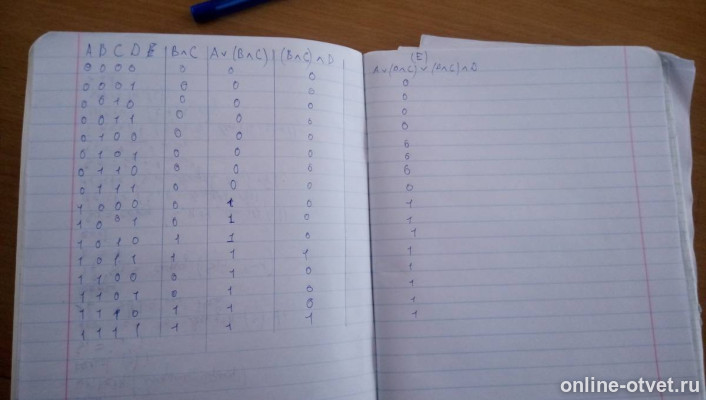 A B C D E B∧C A∨(B∧C) (B∧C)∧D
0 0 0 0 0 0 0
0 0 0 1 0 0 0
0 0 1 0 0 0 0
0 0 1 1 0 0 0
0 1 0 0 0 0 0
0 1 0 1 0 0 0
0 1 1 0 0 0 0
0 1 1 1 0 0 0
1 0 0 0 0 1 0
1 0 0 1 0 1 0
1 0 1 0 1 1 0
1 0 1 1 1 1 1
1 1 0 0 0 1 0
1 1 0 1 0 1 0
1 1 1 0 1 1 0
1 1 1 1 1 1 1
(E)
A∨(B∧C)∨(B∧C)∧D
0
0
0
0
0
0
0
0
1
1
1
1
1
1
1
1
online-otvet.ru